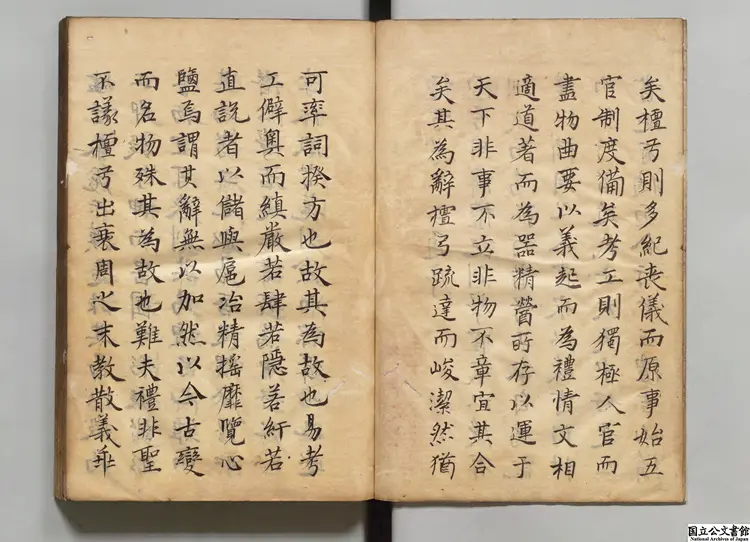 矣檀弓則多紀喪儀而原事始五
官制度備矣考工則獨極人官而
盡物曲要以義起而為禮情文相
適道著而為器精營所存以運于
天下非事不立非物不章宜其合
矣其為辭檀弓疏達而峻潔然猶
可率詞揆方也故其為故也易考
工僻奧而縝嚴若肆若隱若紆若
直説者以儲與扈冶精搖靡覽心
鹽焉謂其辭無以加然以今古變
而名物殊其為故也難夫禮非聖
不議檀弓出衰周之末教散義乖
国立公文書館
National Archives of Japan